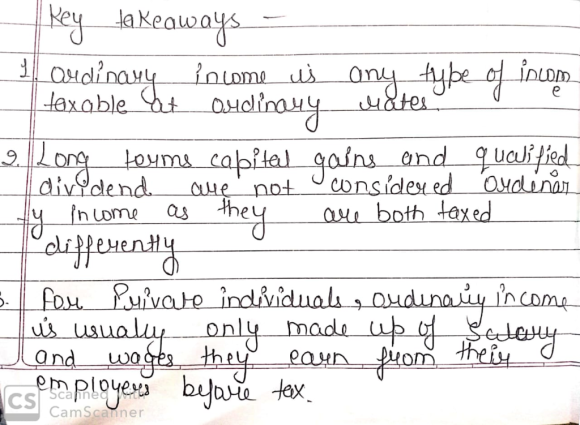 Key takeaways –
1. Ordinary income is any type of incom
e
taxable at ordinary rates.
2. Long terms capital gains and qualified
dividend are not considered Ordinar
y income as they are both taxed
differently
3. For Private individuals, ordinary income
is usually only made up of Salary
and wages they earn from their
employers before tax.
CS Scanned with
CamScanner